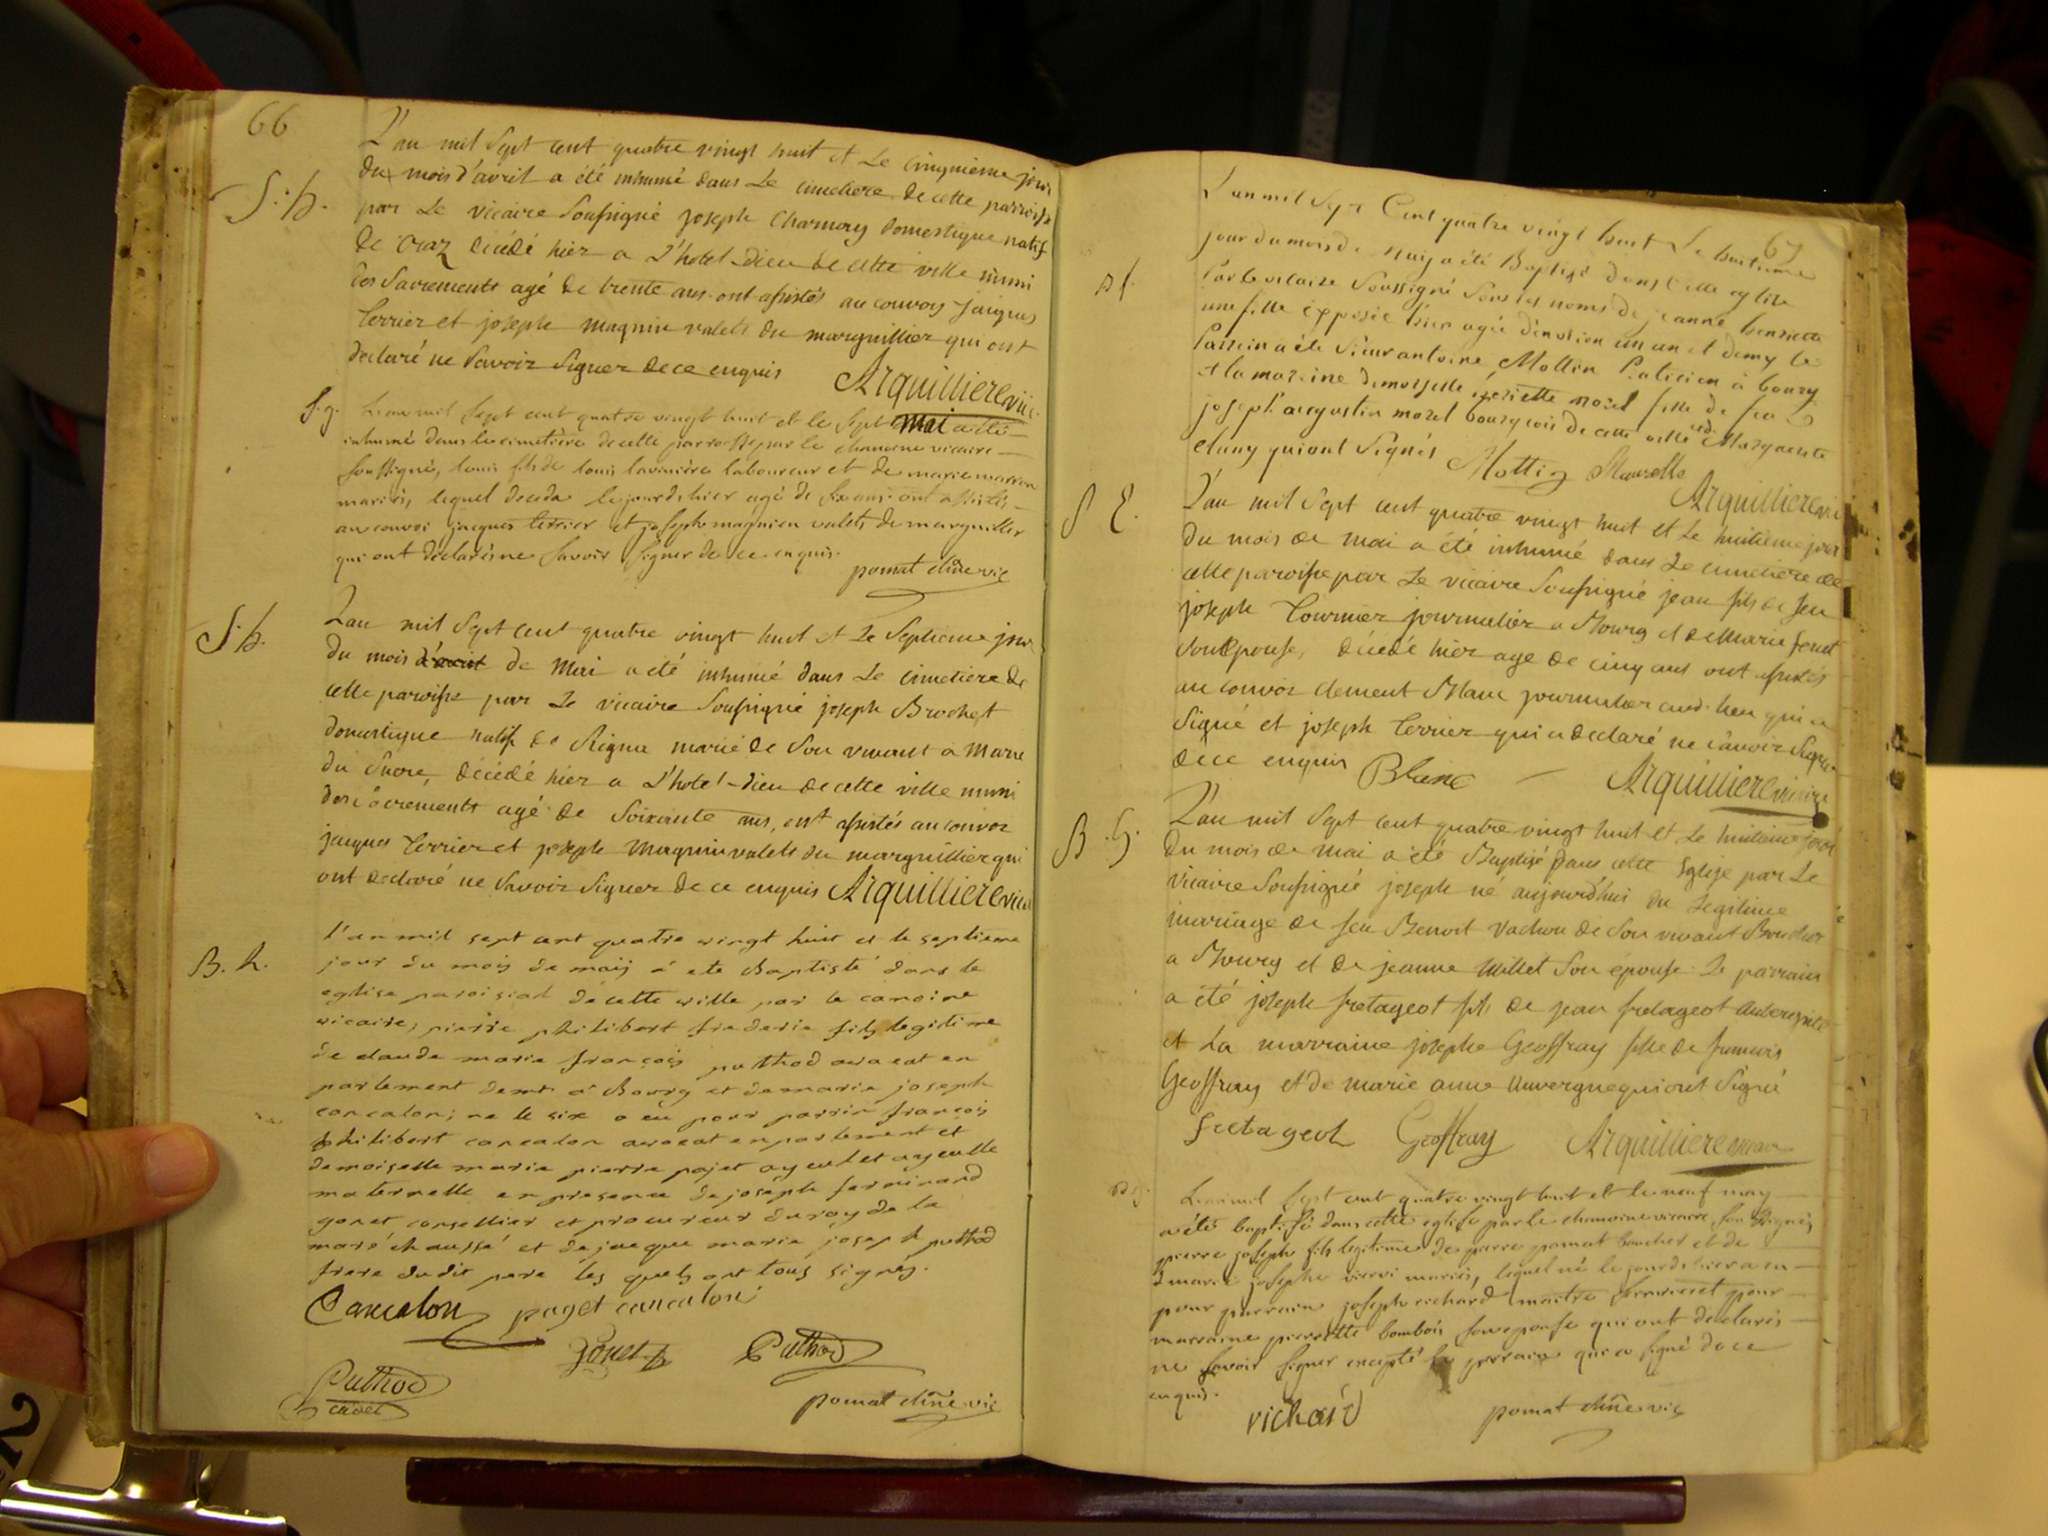 66
L'an mil sept cent quatre vingt huit et le cinquieme jour
S. h.
du mois d'avril a été inhumé dans le cimetiere de cette parroisse
par le vicaire soussigné joseph Charnay domestique natif
de Craz décédé hier a l'hotel-dieu de cette ville muni
des sacrements agé de trente ans ont assistés au convoy jaiques
terrier et joseph magnin valets du marguillier qui ont
declaré ne savoir signer de ce enquis Arquilliere vic.
S. g.
L'an mil sept cent quatre vingt huit et le sept mai a été
inhumé dans le cimetière de cette parroisse par le chanoine vicaire
soussigné, louis fils de louis laviniere laboureur et de marie
mariés, lequel deceda le jour d'hier agé de six ans ont assistés
au convoi jacques terrier et joseph magnien valets de marguillier
qui ont déclarés ne savoir signer de ce enquis.
pomat chne vic
S. h.
L'an mil sept cent quatre vingt huit et le septieme jour
du mois d'avril de mai a été inhumé dans le cimetiere de
cette paroisse par le vicaire soussigné joseph Brochet
domestique natif de Rignia marié de son vivant a Marie
du Sucre, décédé hier a l'hotel-dieu de cette ville muni
des sacrements agé de soixante ans, ont assistés au convoi
jacques terrier et joseph Magnin valets du marguillier qui
ont declaré ne savoir signer de ce enquis Arquilliere vic.
B. h.
l'an mil sept cent quatre vingt huit et le septieme
jour du mois de maij a ete Baptisté dans le
eglise paroisial de cette ville par le canoine
vicaire, pierre philibert frederic fils legitime
de claude marie françois puthod avocat en
parlement demt a Bourg et de marie joseph
cancalon; ne le six a eu pour parrin françois
philibert cancalon avocat en parlement et
demoiselle marie pierre pajet ayeul et ayeulle
maternelle en presence de joseph ferdinand
gonet conseillier et procureur du roy de la
maré chaussé et de jacque marie joseph puthod
frere du dit pere les quels ont tous signés.
Cancalon paget cancalon
gonet Puthod
Puthod
cadet
pomat chne vic
67
L'an mil sept Cent quatre vingt huit Le huitieme
jour du mois de maij a été Baptisé dans cette eglise
Par le vicaire soussigné sous les noms de jeanne henriette
une fille exposée hier agée d'environ un an et demy le
Parrain a été sieur antoine Mottin Praticien à bourg
et la maraine demoiselle henriette morel fille de feu
joseph augustin morel bourgeois de cette ville et de Marguerite
cluny qui ont signés Mottin Maurelle
Arquilliere vic
S E.
L'an mil sept cent quatre vingt huit et le huitieme jour
du mois de mai a été inhumé dans le cimetiere de
cette paroisse par le vicaire soussigné jean fils de feu
joseph Tournier journalier a Bourg et de Marie feret
son Epouse, décédé hier agé de cinq ans ont assistés
au convoi clement Blanc journalier aud. lieu qui a
signé et joseph terrier qui a declaré ne savoir signer
de ce enquis Blanc Arquilliere vicaire
B. G.
L'an mil sept cent quatre vingt huit et le huitieme jour
du mois de mai a été Baptisé dans cette Eglise par le
vicaire soussigné joseph né aujourd'hui du legitime
mariage de feu Benoit Vachon de son vivant Boucher
a Bourg et de jeanne Millet son épouse le parrain
a été joseph fretageot fils de jean fretageot Aubergiste
et la marraine josephe Geoffray fille de francois
Geoffray et de marie anne Auvergne qui ont signé
fretageot Geoffray Arquilliere vicaire
B. g.
L'an mil sept cent quatre vingt huit et le neuf may
a été baptisé dans cette eglise par le chanoine vicaire soussigné,
pierre joseph fils legitime de pierre pomat boucher et de
marie josephe mariés, lequel né le jour d'hier a eu
pour parrain joseph richard maitre et pour
marraine pierrette bombois son epouse qui ont declarés
ne savoir signer excepté le parrain qui a signé de ce
enquis.
richard pomat chne vic